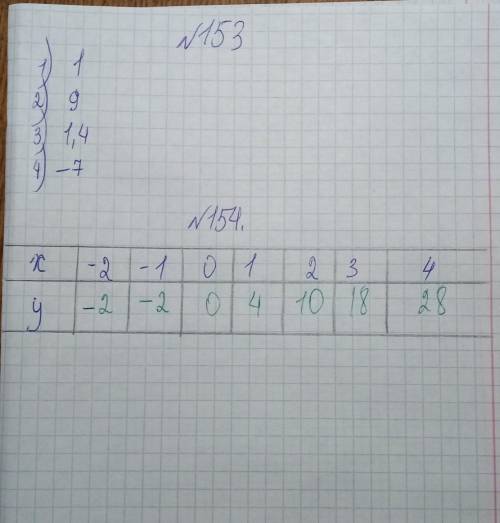 №153
1) 1
2) 9
3) 1,4
4) -7
№154.
x -2 -1 0 1 2 3 4
y -2 -2 0 4 10 18 28